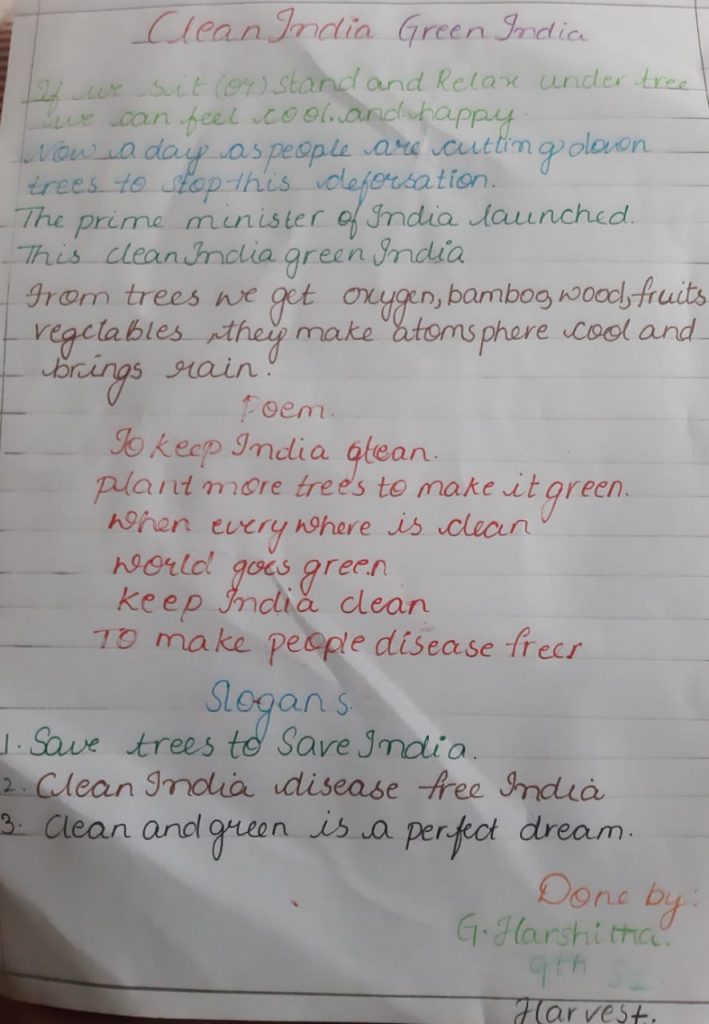 Clean India Green India
If we sit (or) stand and Relax under tree
we can feel cool and happy.
Now a day as people are cutting down
trees to stop this deforsation.
The prime minister of India launched.
This clean India green India
From trees we get oxygen, bamboo, wood, fruits
vegetables, they make atomsphere cool and
brings rain.
Poem.
To keep India glean.
plant more trees to make it green.
when every where is clean
world goes green
keep India clean
TO make people disease freer
Slogans.
1. Save trees to Save India.
2. Clean India disease free India
3. Clean and green is a perfect dream.
Done by:
G. Harshitha.
9th S2
Harvest.